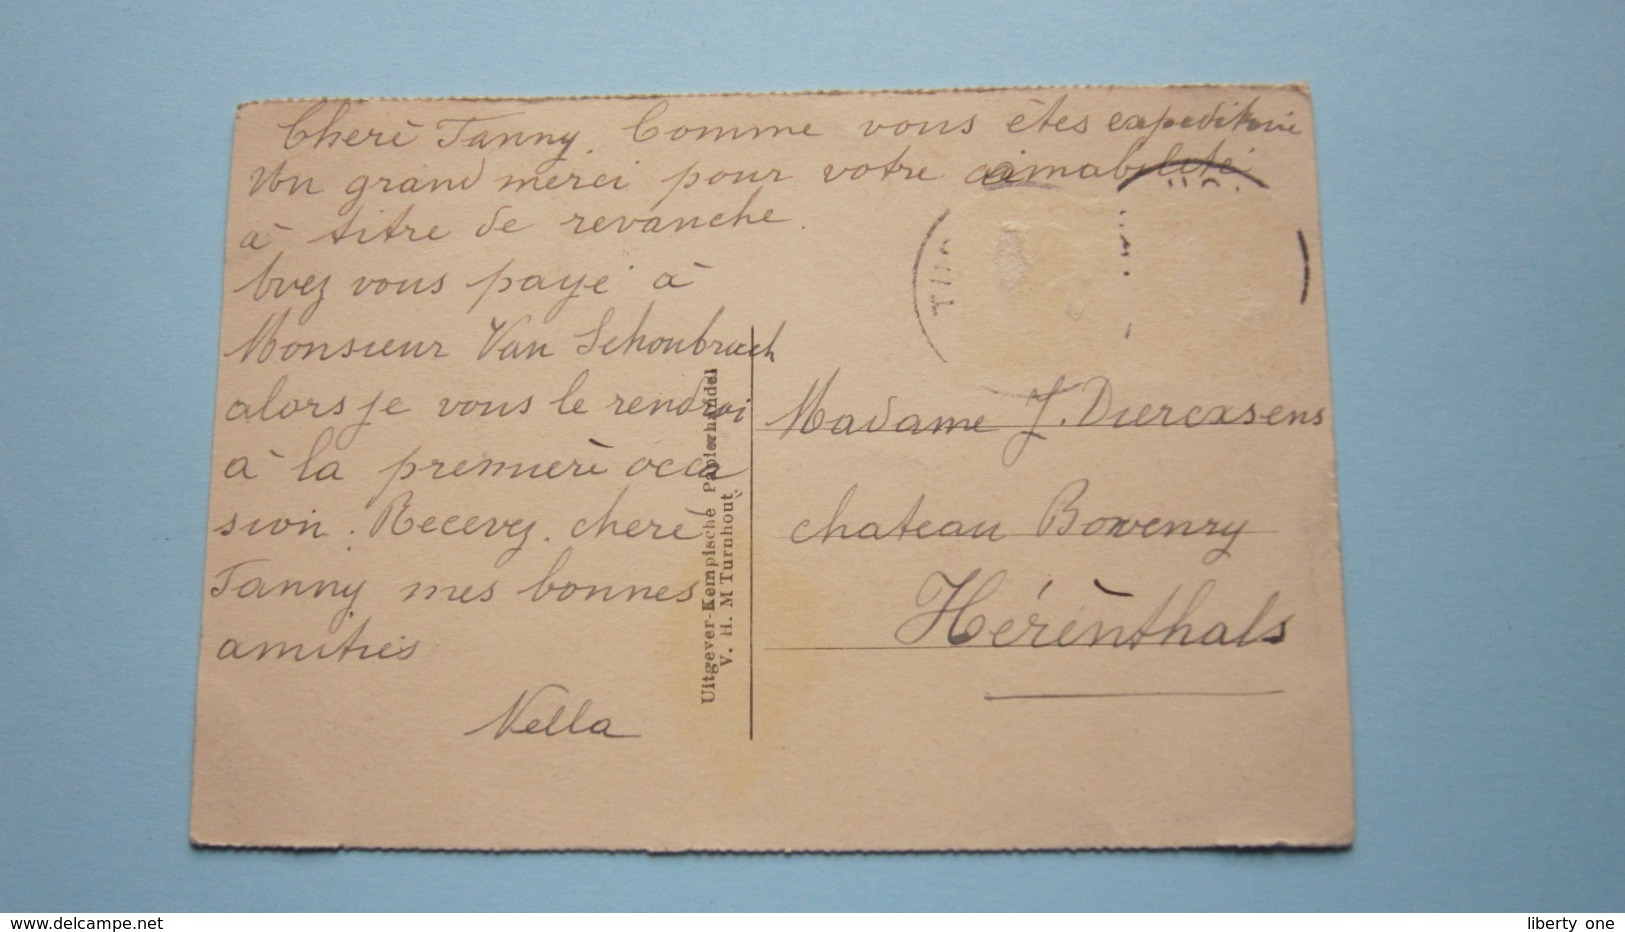 Cherè Fanny. Comme vous êtes expeditive
Un grand merci pour votre aimabelité
à titre de revanche.
Avez vous payé à
Monsieur Van Schoubroech
alors je vous le rendrai
à la premierè occa
sion. Recevez. cherè
Fanny mes bonnes
amitiés
Nella
Uitgever-Kempische Papierhandel
V. H. M Turnhout
Madame J. Diercxsens
chateau Bowenry
Hérènthals
www.delcampe.net
liberty one